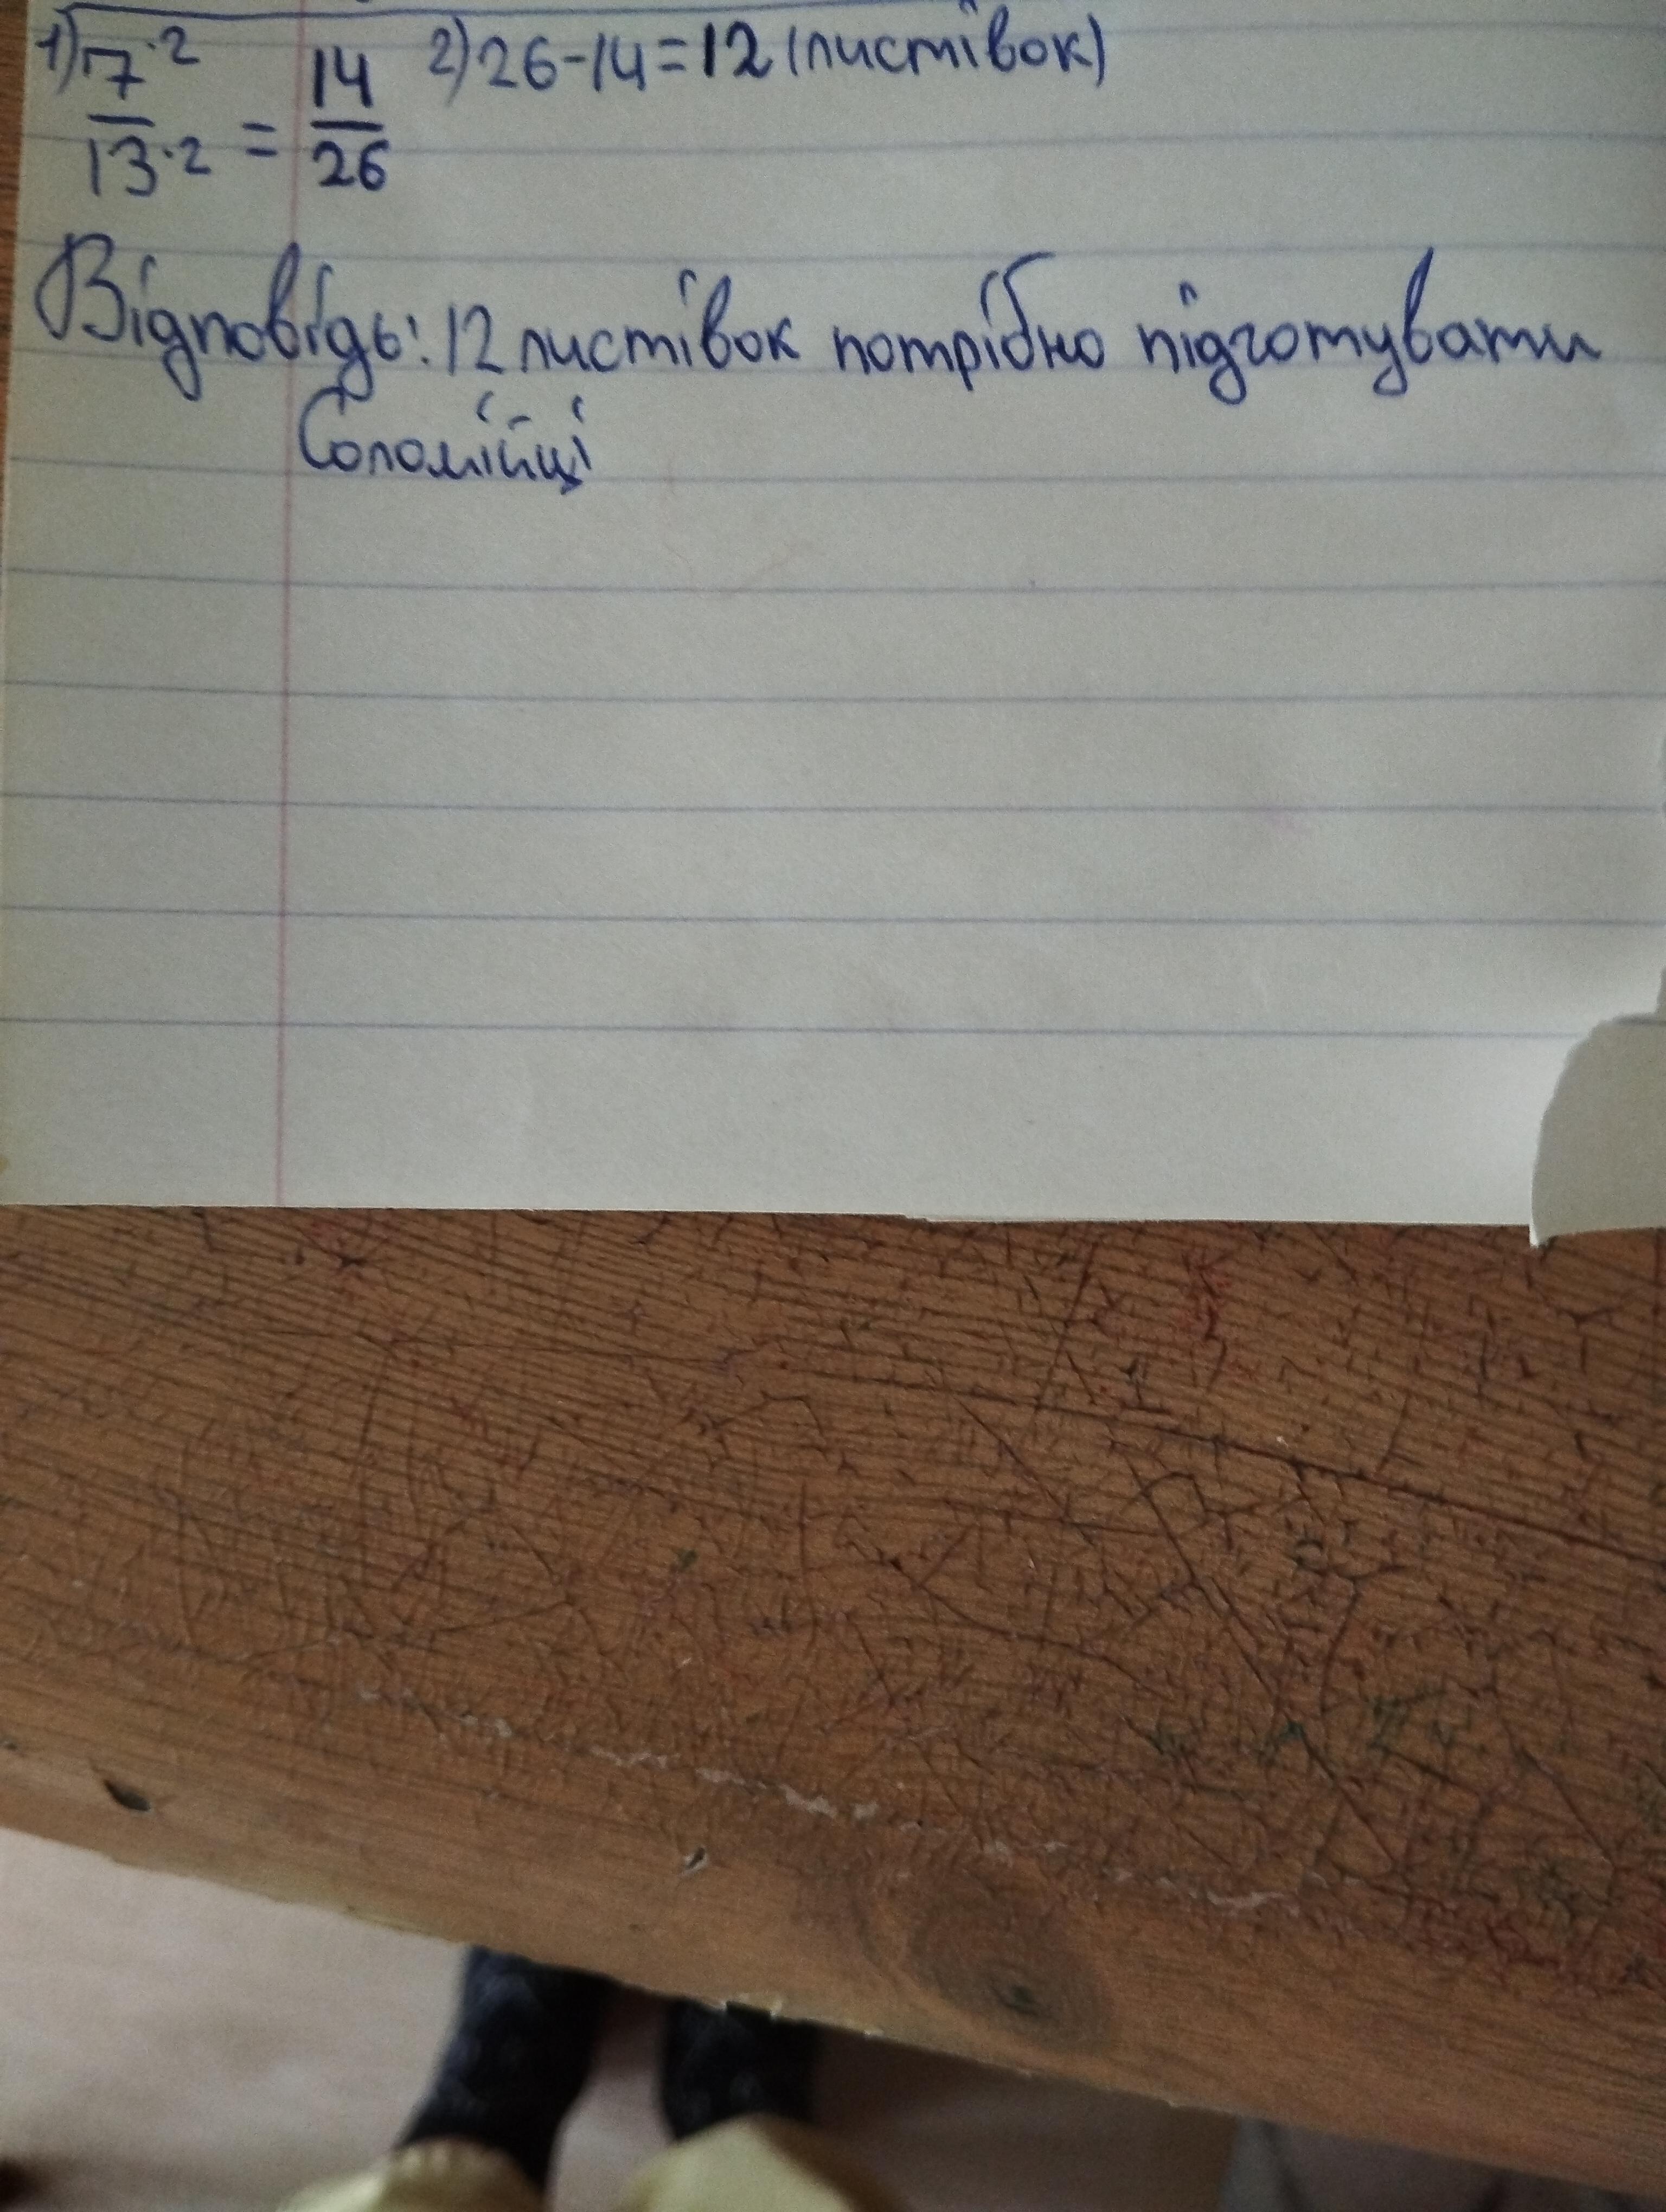 1) 7·2 14 2) 26-14=12 (листівок)
13·2 = 26
Відповідь: 12 листівок потрібно підготувати
Соломійці